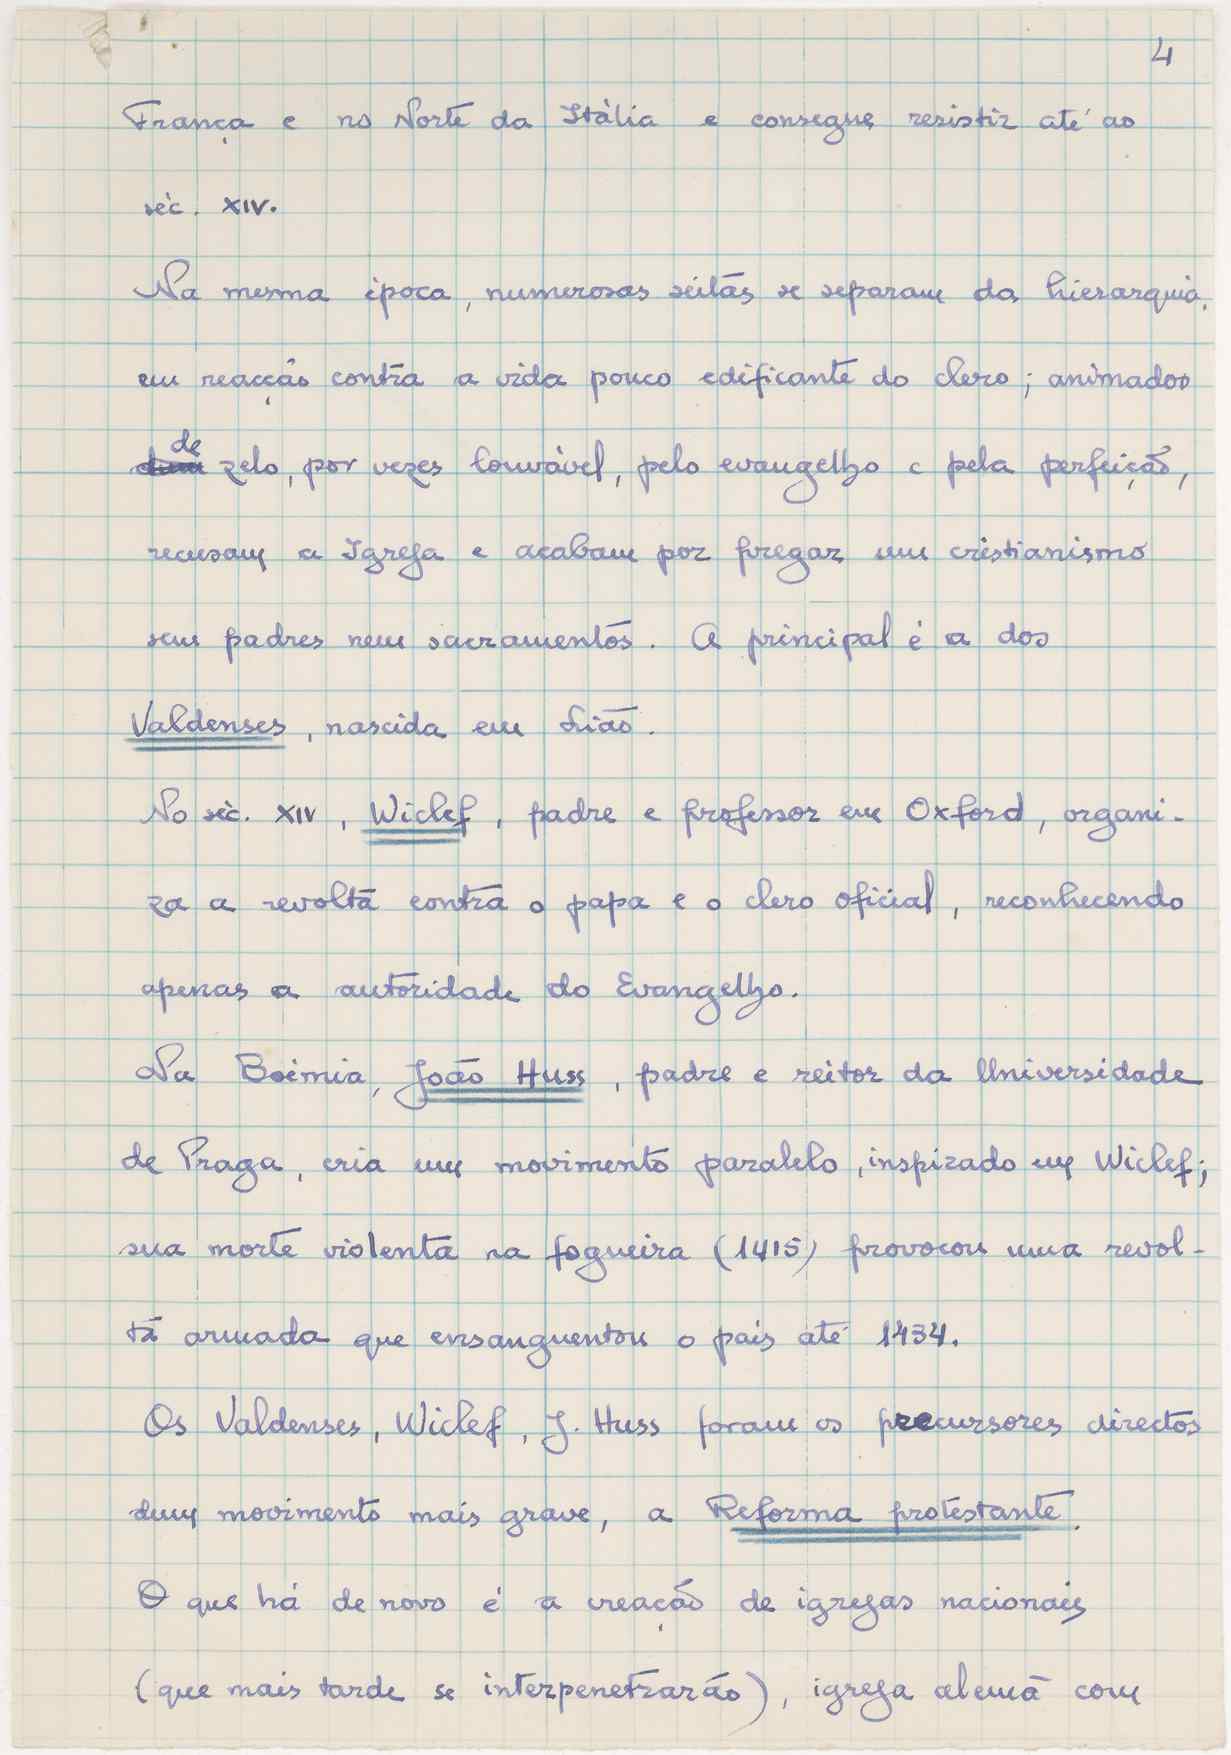 4
França e no Norte da Itália e consegue resistir até ao
séc. XIV.
Na mesma época, numerosas seitas se separam da hierarquia,
em reacção contra a vida pouco edificante do clero; animados
de zelo, por vezes louvável, pelo evangelho e pela perfeição,
recusam a Igreja e acabam por pregar um cristianismo
sem padres nem sacramentos. A principal é a dos
Valdenses, nascida em Lião.
No séc. XIV, Wiclef, padre e professor em Oxford, organi-
za a revolta contra o papa e o clero oficial, reconhecendo
apenas a autoridade do Evangelho.
Na Boémia, João Huss, padre e reitor da Universidade
de Praga, cria um movimento paralelo, inspirado em Wiclef;
sua morte violenta na fogueira (1415) provocou uma revol-
ta armada que ensanguentou o país até 1434.
Os Valdenses, Wiclef, J. Huss foram os precursores directos
dum movimento mais grave, a Reforma protestante.
O que há de novo é a creação de igrejas nacionais
(que mais tarde se interpenetrarão), igreja alemã com